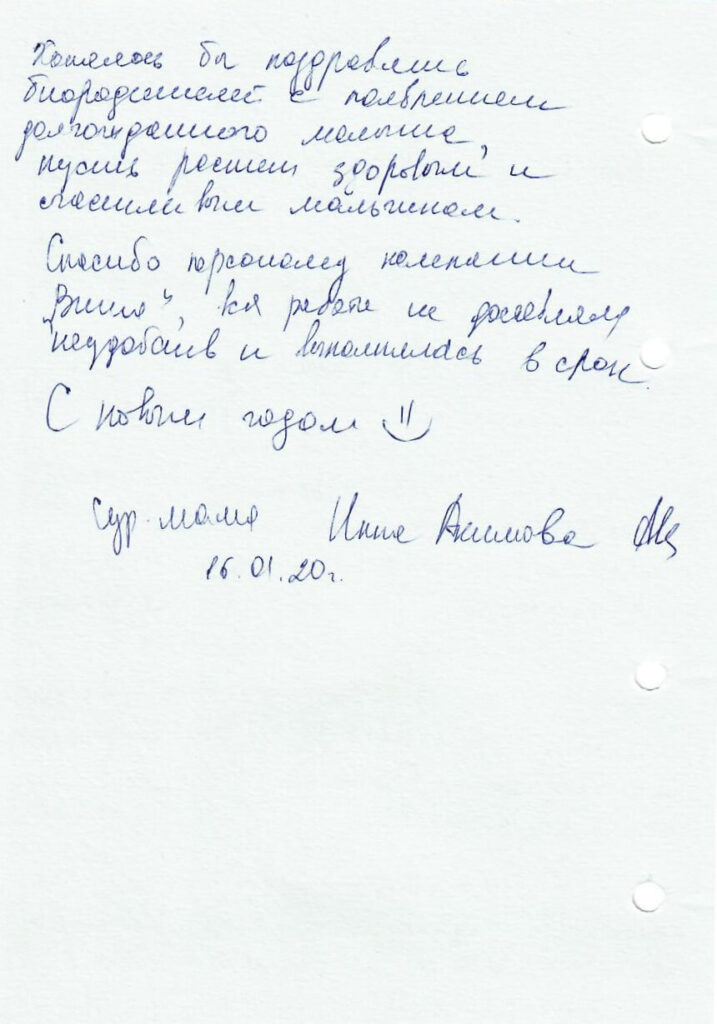 Хотелось бы поздравить
биородителей с появлением
долгожданного малыша,
пусть растет здоровым и
счастливым мальчиком.
Спасибо персоналу компании
вся работа не доставляла
неудобств и выполнялась в срок.
С новым годом
Сур. мама Инна Акимова
16.01.20г.